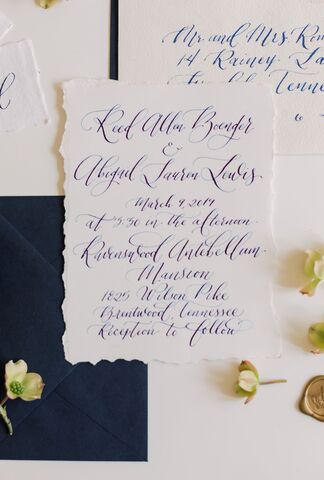 Mr. and Mrs. Ro
14 Rainey
Tenne
Reed Allen Boenger
&
Abigail Lauren Lewis
March 9, 2019
at 5:30 in the afternoon
Ravenswood Antebellum
Mansion
1825 Wilson Pike
Brentwood, Tennessee
Reception to follow